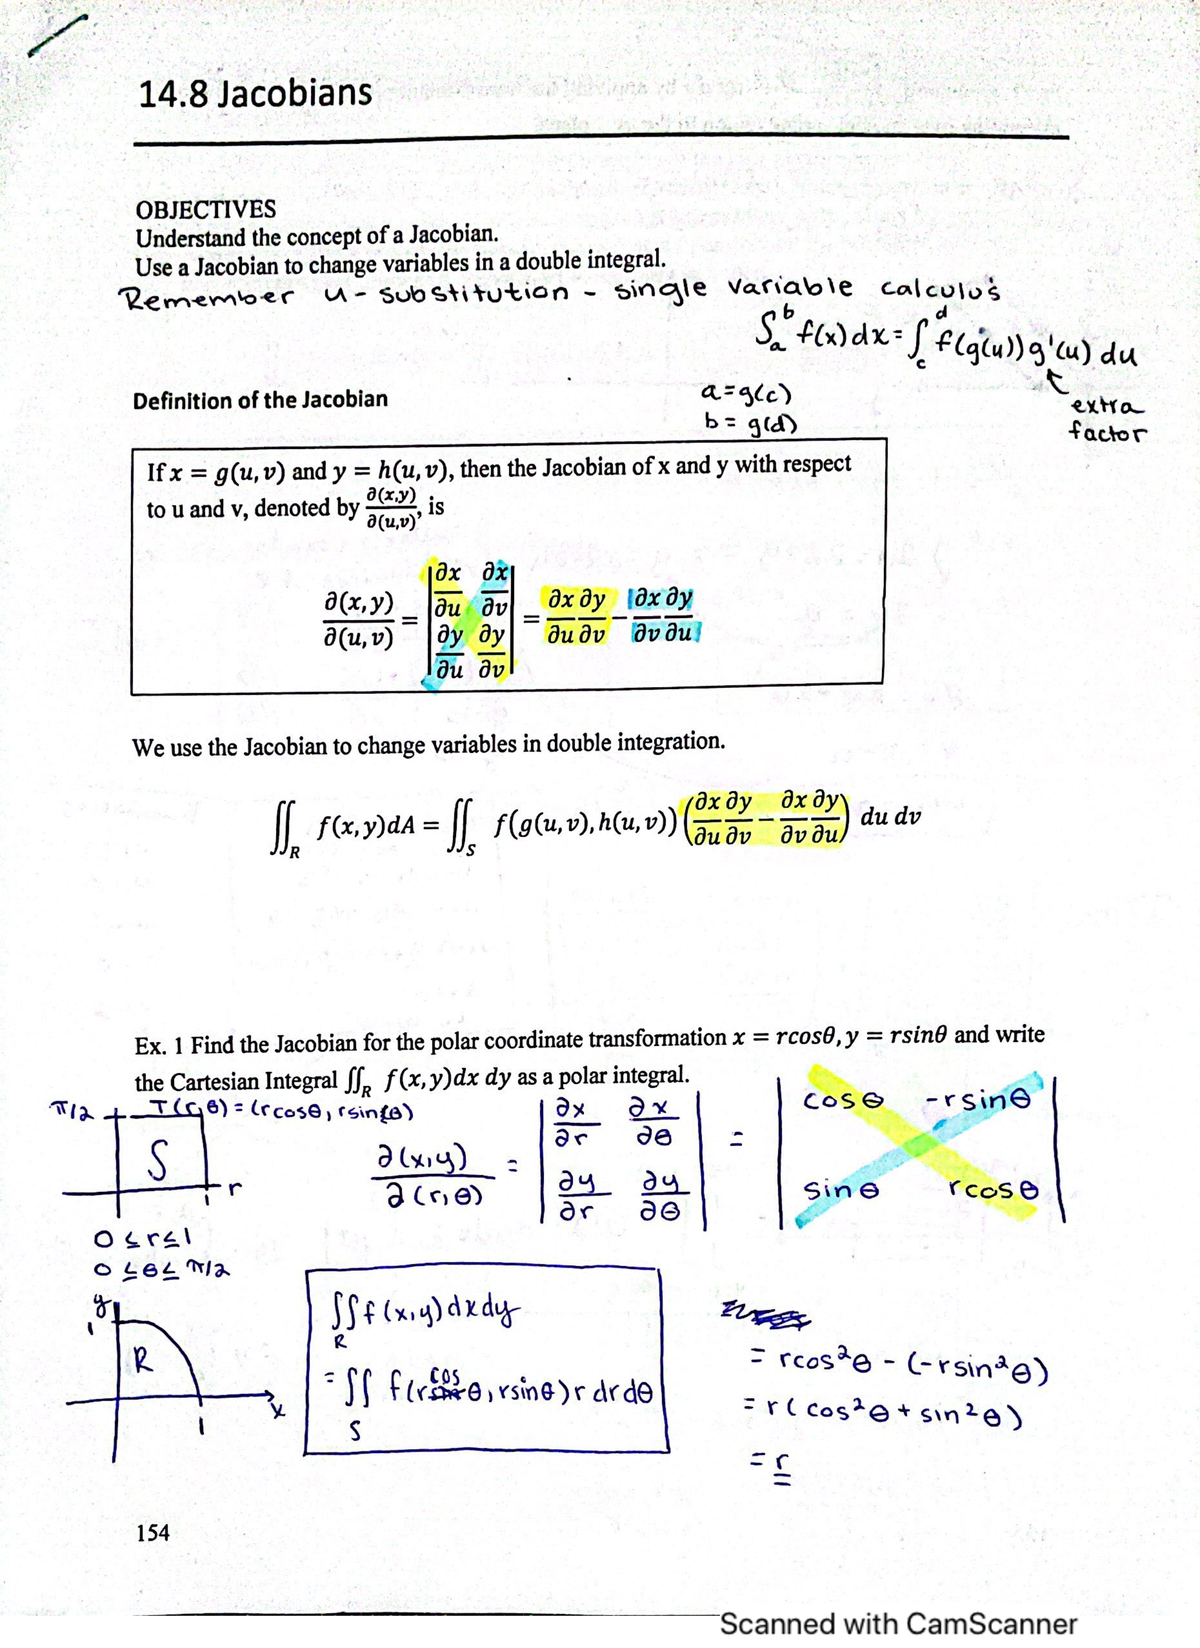 14.8 Jacobians
OBJECTIVES
Understand the concept of a Jacobian.
Use a Jacobian to change variables in a double integral.
Remember u - substitution - single variable calculus
∫_a^b f(x) dx = ∫_c^d f(g(u)) g'(u) du
a = g(c)
b = g(d)
extra
factor
Definition of the Jacobian
If x = g(u, v) and y = h(u, v), then the Jacobian of x and y with respect
to u and v, denoted by ∂(x,y)/∂(u,v), is
∂(x, y)/∂(u, v) = |∂x/∂u ∂x/∂v; ∂y/∂u ∂y/∂v| = ∂x/∂u ∂y/∂v − ∂x/∂v ∂y/∂u
We use the Jacobian to change variables in double integration.
∬_R f(x, y)dA = ∬_S f(g(u, v), h(u, v)) (∂x/∂u ∂y/∂v − ∂x/∂v ∂y/∂u) du dv
Ex. 1 Find the Jacobian for the polar coordinate transformation x = rcosθ, y = rsinθ and write
the Cartesian Integral ∬_R f(x, y)dx dy as a polar integral.
π/2 T(r,θ) = (rcosθ, rsinθ)
S
r
1
∂(x,y)/∂(r,θ) = |∂x/∂r ∂x/∂θ; ∂y/∂r ∂y/∂θ| = |cosθ -rsinθ; sinθ rcosθ|
0 ≤ r ≤ 1
0 ≤ θ ≤ π/2
y
1
R
x
1
∬_R f(x,y) dx dy
= ∬_S f(rcosθ, rsinθ) r dr dθ
= rcos²θ - (-rsin²θ)
= r(cos²θ + sin²θ)
= r
154
Scanned with CamScanner